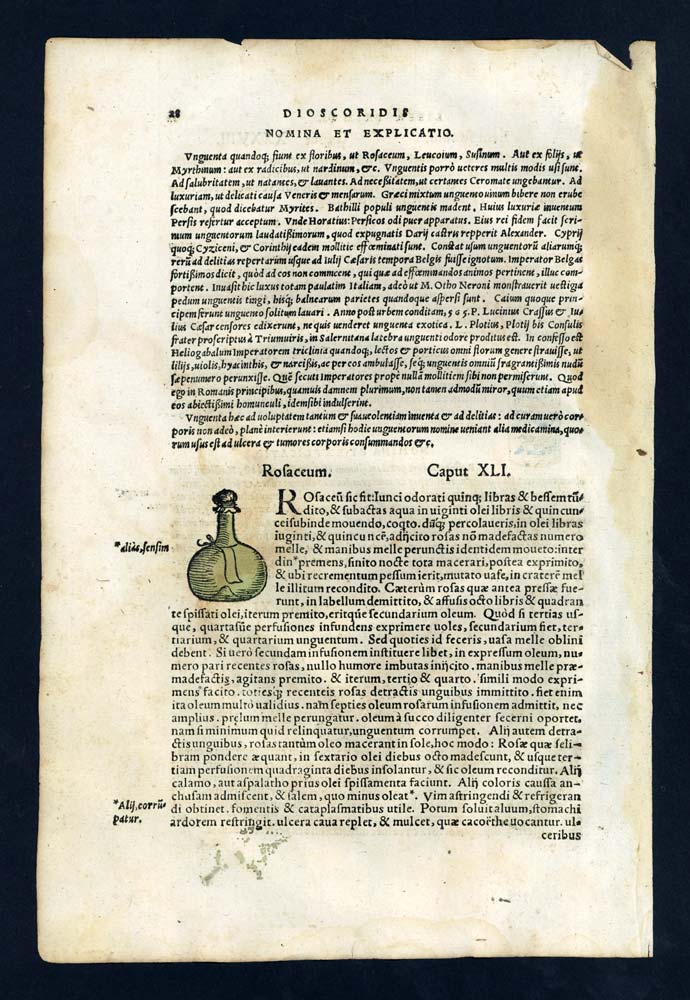 28 DIOSCORIDIS
NOMINA ET EXPLICATIO.
Vnguenta quandoq; fiunt ex floribus, ut Rosaceum, Leucoium, Susinum. Aut ex folijs, ut
Myrthinum: aut ex radicibus, ut nardinum, &c. Vnguentis porrò ueteres multis modis usi sunt.
Ad salubritatem, ut natantes, & lauantes. Ad necessitatem, ut certantes Ceromate ungebantur. Ad
luxuriam, ut delicati causa Veneris & mensarum. Græci mixtum unguento uinum bibere non erube
scebant, quod dicebatur Myrites. Bathilli populi unguentis madent. Huius luxuriæ inuentum
Persis refertur acceptum. Vnde Horatius: Persicos odi puer apparatus. Eius rei fidem facit scri-
nium unguentorum laudatissimorum, quod expugnatis Darij castris repperit Alexander. Cyprij
quoq; Cyziceni, & Corinthij eadem mollitie effœminati sunt. Constat usum unguentorū aliarumq;
rerū ad delitias repertarum usque ad Iulij Cæsaris tempora Belgis fuisse ignotum. Imperator Belgas
fortissimos dicit, quòd ad eos non commeent, qui quæ ad effœmandos animos pertinent, illuc com-
portent. Inuasit hic luxus totam paulatim Italiam, adeò ut M. Otho Neroni monstrauerit uestigia
pedum unguentis tingi, hisq; balnearum parietes quandoque aspersi sunt. Caium quoque prin-
cipem ferunt unguento solitum lauari. Anno post urbem conditam, 565. P. Lucinius Crassus & Iu-
lius Cæsar censores edixerunt, ne quis uenderet unguenta exotica. L. Plotius, Plotij bis Consulis
frater proscriptus à Triumuiris, in Salernitana latebra unguenti odore proditus est. In confesso est
Heliogabalum Imperatorem triclinia quandoq; lectos & porticus omni florum genere strauisse, ut
lilijs, uiolis, hyacinthis, & narcissis, ac per eos ambulasse, seq; unguentis omniū fragrantissimis nudū
sæpenumero perunxisse. Quē secuti Imperatores propè nullā mollitiem sibi non permiserunt. Quod
ego in Romanis principibus, quamuis damnem plurimum, non tamen admodū miror, quum etiam apud
eos abiectissimi homunculi, idem sibi indulserint.
Vnguenta hæc ad voluptatem tantum & suaueolentiam inuenta & ad delitias: ad curam uerò cor-
poris non adeò, planè interierunt: etiamsi hodie unguentorum nomine ueniant alia medicamina, quo-
rum usus est ad ulcera & tumores corporis consummandos &c.
Rosaceum. Caput XLI.
ROsaceū sic fit: Iunci odorati quinq; libras & bessem tū-
dito, & subactas aqua in uiginti olei libris & quincun-
ce subinde mouendo, coqto. dūq; percolaueris, in olei libras
*aliâs, sensim
iuginti, & quincuncē, adijcito rosas nō madefactas numero
melle, & manibus melle perunctis identidem moueto: inter
din* premens, sinito nocte tota macerari, postea exprimito,
& ubi recrementum pessum ierit, mutato uase, in craterē mel
le illitum recondito. Cæterùm rosas quæ antea pressæ fue-
runt, in labellum demittito, & affusis octo libris & quadran
te spissati olei, iterum premito, eritq́ue secundarium oleum. Quòd si tertias us-
que, quartasúe perfusiones infundens exprimere uoles, secundarium fiet, ter-
tiarium, & quartarium unguentum. Sed quoties id feceris, uasa melle oblini
debent. Si uerò secundam infusionem instituere libet, in expressum oleum, nu-
mero pari recentes rosas, nullo humore imbutas inijcito. manibus melle præ-
madefactis, agitans premito. & iterum, tertio & quarto. simili modo expri-
mens facito. totiesq; recenteis rosas detractis unguibus immittito. fiet enim
ita oleum multò ualidius. nam septies oleum rosarum infusionem admittit, nec
amplius. prelum melle perungatur. oleum à succo diligenter secerni oportet.
nam si minimum quid relinquatur, unguentum corrumpet. Alij autem detra-
ctis unguibus, rosas tantùm oleo macerant in sole, hoc modo: Rosæ quæ seli-
bram pondere æquant, in sextario olei diebus octo madescunt, & usque ter-
tiam perfusionem quadraginta diebus insolantur, & sic oleum reconditur. Alij
calamo, aut aspalatho prius olei spissamenta faciunt. Alij coloris caussa an-
chusam admiscent, & salem, quo minus oleat*. Vim astringendi & refrigeran
*Alij, corrū
patur.
di obtinet. fomentis & cataplasmatibus utile. Potum soluit aluum, stomachi
ardorem restringit. ulcera caua replet, & mulcet, quæ cacoëthe uocantur. ul-
ceribus